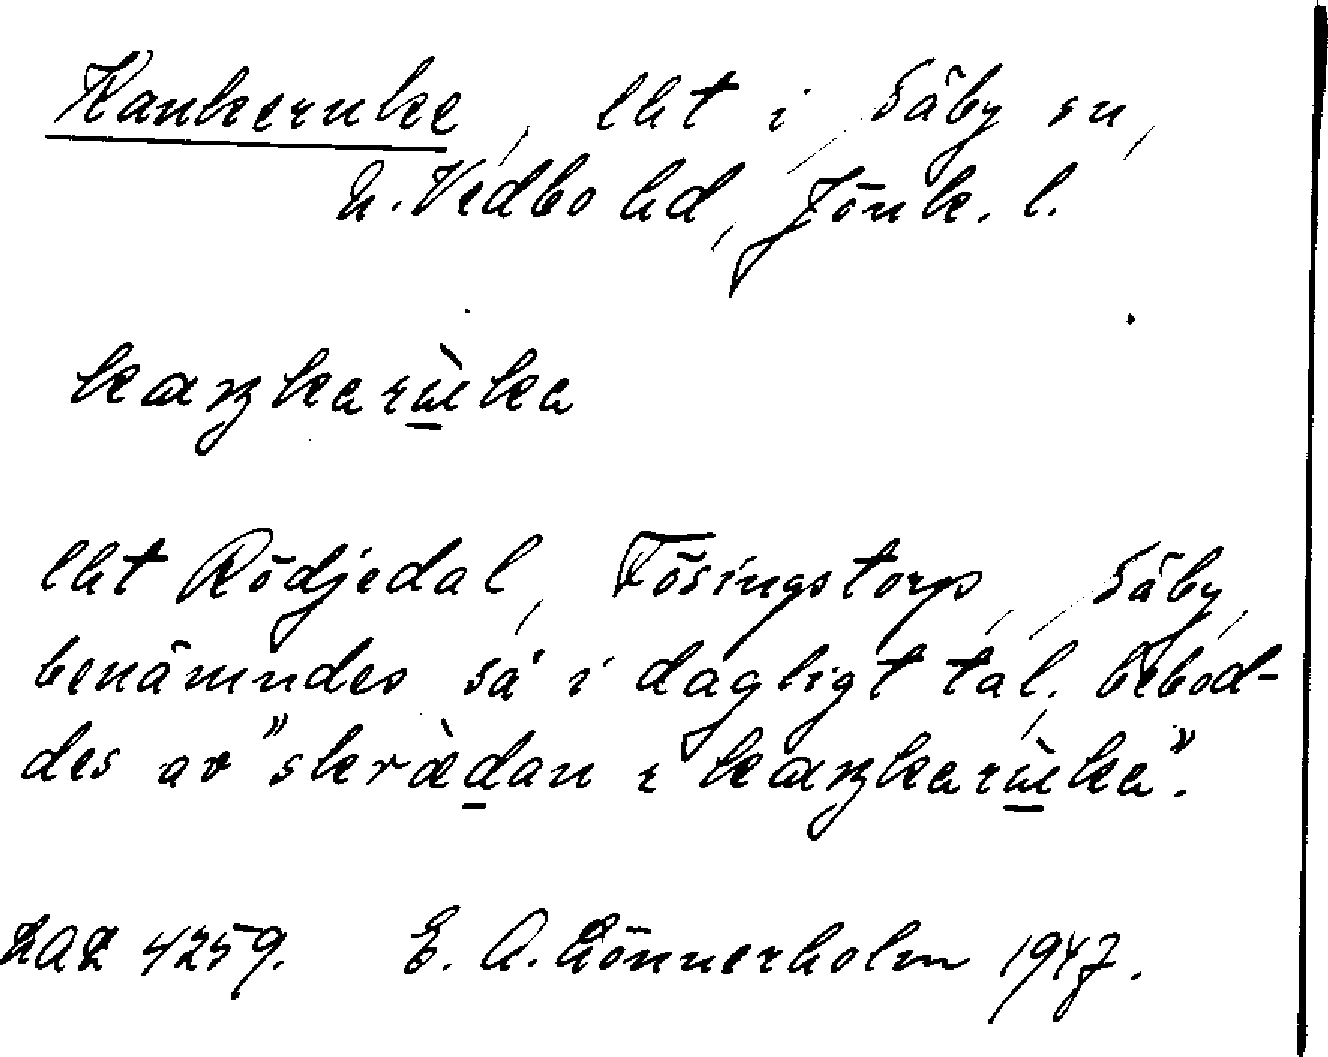 Kankeruke, lht i Säby sn,
N. Vedbo hd, Jönk. l.
kaŋkarùka
lht Rödjedal, Fösingstorp, Säby,
benämndes så i dagligt tal, bebod-
des av "skrædan i kaŋkarùka".
4259. E. A. Lönnerholm 1947.